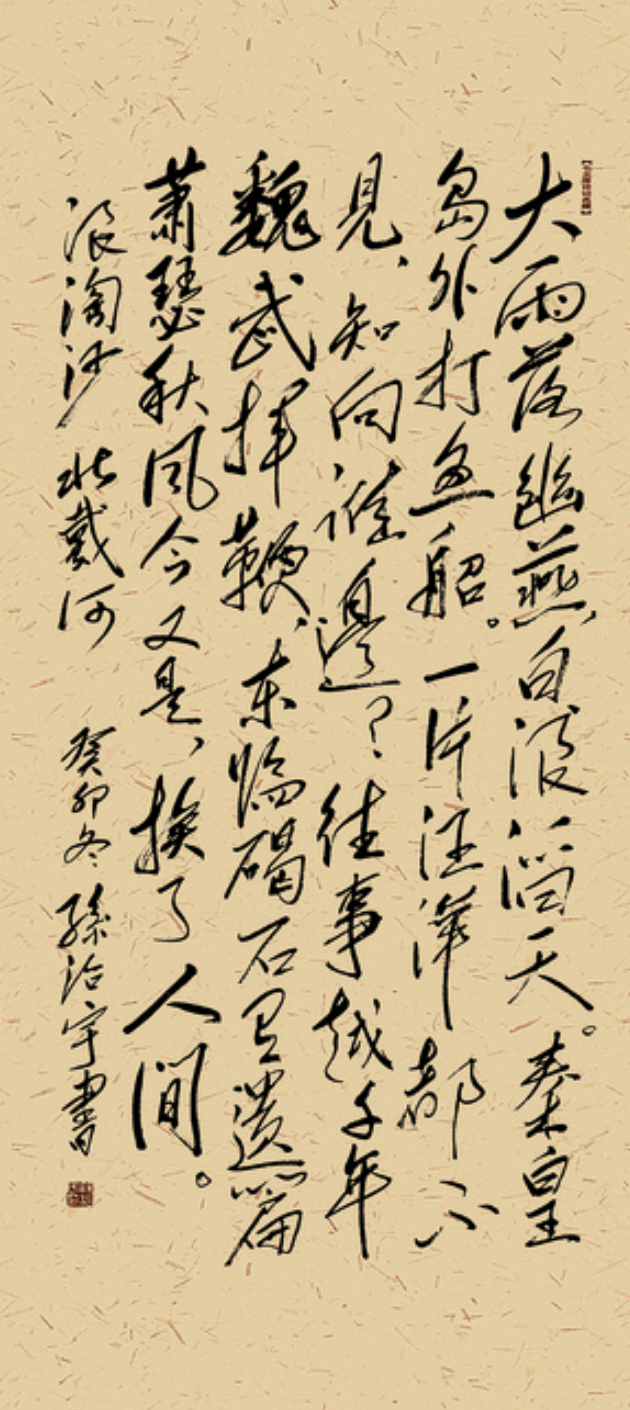 大雨落幽燕白浪滔天。秦皇
島外打魚船。一片汪洋都不
見、知向誰邊?往事越千年
魏武揮鞭、東臨碣石有遺篇
蕭瑟秋風今又是、換了人間。
浪淘沙 北戴河 癸卯冬 孫治宇書